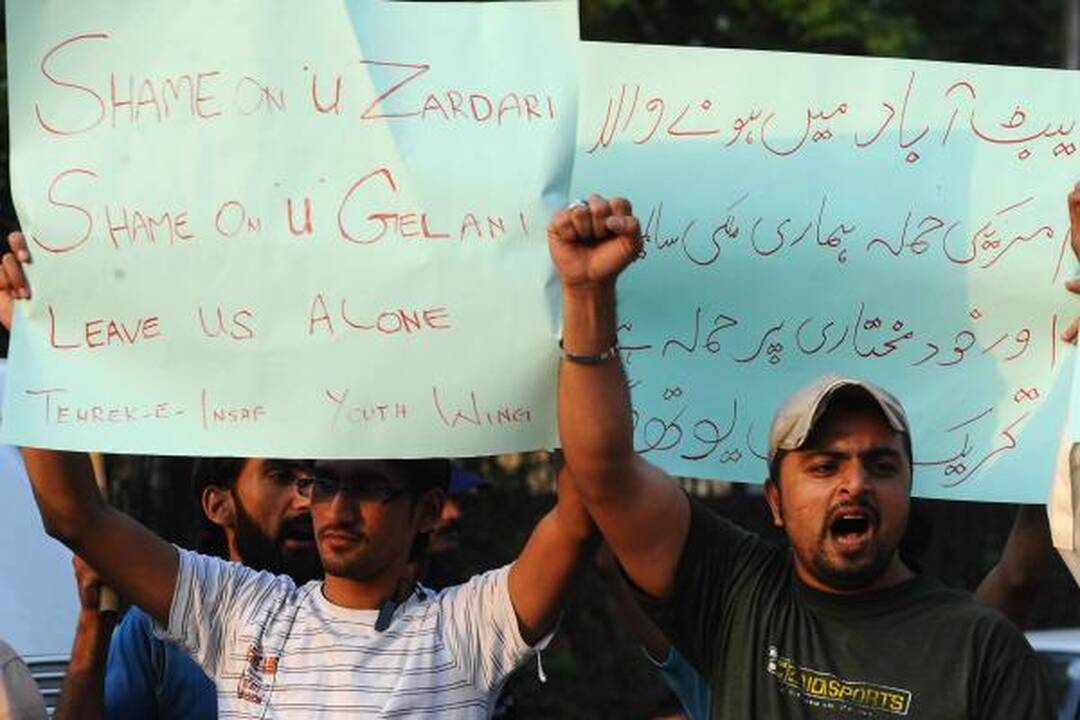 SHAME ON U ZARDARI
SHAME ON U GELANI
LEAVE US ALONE
TEHREK-E-INSAF YOUTH WING
یبٹ آباد میں ہونے والا
امریکی حملہ ہماری ملکی
اور خود مختاری پر حملہ ہے
یوتھ
SPORTS